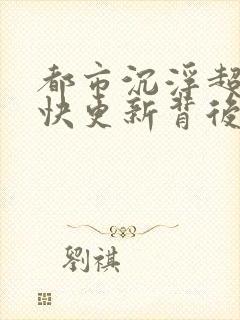 都市沉浮超
快更新背後
劉祺